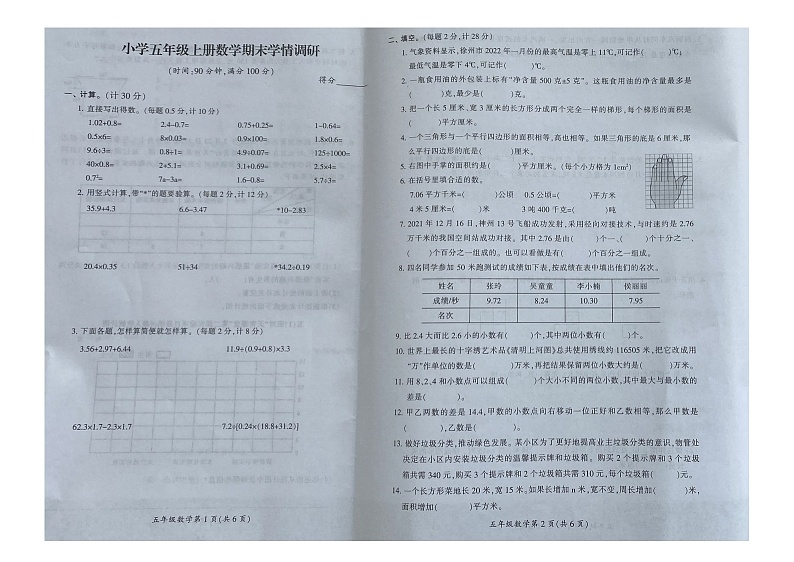 小学五年级上册数学期末学情调研
(时间:90分钟,满分100分)
得分
一、计算。(计30分)
1. 直接写出得数。(每题0.5分,计10分)
1.02+0.8= 2.4-0.7= 0.75+0.25= 1-0.64=
0.5×6= 8×0.03= 0.9×100= 1.8×0.6=
9.6÷3= 0.8+1= 4.9+0.07= 125÷1000=
40×0.8= 2+5.1= 3.1+0.69= 2.5×4=
0.7²= 7a-3a= 1.6-0.8= 5.7÷3=
2. 用竖式计算,带“*”的题要验算。(每题2分,计12分)
35.9+4.3 6.6-3.47 *10-2.83
20.4×0.35 51÷34 *34.2÷0.19
3. 下面各题,怎样算简便就怎样算。(每题2分,计8分)
3.56+2.97+6.44 11.9÷(0.9+0.8)×3.3
62.3×1.7-2.3×1.7 7.2÷[0.24×(18.8+31.2)]
五年级数学第1页(共6页)
二、填空。(每题2分,计28分)
1. 气象资料显示,徐州市2022年一月份的最高气温是零上11℃,可记作( )℃;
最低气温是零下4℃,可记作( )℃。
2. 一瓶食用油的外包装上标有“净含量500克±5克”。这瓶食用油的净含量最多是
( )克,最少是( )克。
3. 把一个长5厘米,宽3厘米的长方形分成两个完全一样的梯形,每个梯形的面积是
( )平方厘米。
4. 一个三角形与一个平行四边形的面积相等,高也相等。如果三角形的底是6厘米,那
么平行四边形的底是( )厘米。
5. 右图中手掌的面积约是( )平方厘米。(每个小方格为1cm²)
6. 在括号里填合适的数。
7.06平方千米=( )公顷 0.5公顷=( )平方米
4米5厘米=( )米 3吨400千克=( )吨
7. 2021年12月16日,神州13号飞船成功发射,采用径向对接技术,与时速约是2.76
万千米的我国空间站成功对接。其中2.76是由( )个一、( )个十分之一、
( )个百分之一组成的。也可以看做是有( )个百分之一组成。
8. 四名同学参加50米跑测试的成绩如下表,按成绩在表中填出他们的名次。
姓名 张玲 吴童童 李小楠 侯丽丽
成绩/秒 9.72 8.24 10.30 7.95
名次
9. 比2.4大而比2.6小的小数有( )个,其中两位小数有( )个。
10. 世界上最长的十字绣艺术品《清明上河图》总共使用绣线约116505米,把它改成用
“万”作单位的数是( )万米,再把结果保留两位小数大约是( )万米。
11. 用8、2、4和小数点可以组成( )个大小不同的两位小数,其中最大与最小数的
差是( )。
12. 甲乙两数的差是14.4,甲数的小数点向右移动一位正好和乙数相等,那么甲数是
( ),乙数是( )。
13. 做好垃圾分类,推动绿色发展。某小区为了更好地提高业主垃圾分类的意识,物管处
决定在小区内安装垃圾分类的温馨提示牌和垃圾箱。购买2个提示牌和3个垃圾
箱共需340元,购买3个提示牌和2个垃圾箱共需310元,每个垃圾箱( )元。
14. 一个长方形菜地长20米,宽15米。如果长增加n米,宽不变,周长增加( )米,
面积增加( )平方米。
五年级数学第2页(共6页)